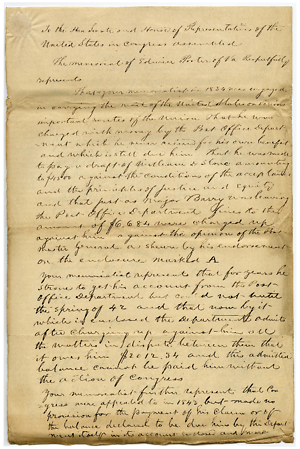 To the Hon Senate and House of Representatives of the
United States in Congress assembled
The memorial of Edwin Porter of Va Respectfully
represents
That your memorialist in 1834 was engaged
in carrying the mail of the United States on various
important routes of the Union. That he was
charged with money by the Post Office Depart-
ment which he never received for his own benefit
and which is still due him. That he was made
to pay a draft of William B Stone amounting
to against the conditions of the acceptance
and the principles of justice and equity
and that just as Major Barry was leaving
the Post Office Department Drafts to the
amount of $6.684 were charged up
against him against the opinion of the Post
Master General as shewn by his endorsement
on the enclosure marked A
Your memorialist represents that for years he
strove to get his account from the Post
Office Department but could not until
the spring of 42 and that now by it
which is enclosed the department admits
after charging up against him all
the matters in dispute between them that
it owes him $2012.34 and this admitted
balance cannot be paid him without
the action of Congress
Your memorialist further represents, that Con-
gress were appealed to in 1843 but made no
provision for the payment of his claim or of
the balance declared to be due him by this Depart
ment itself in the account